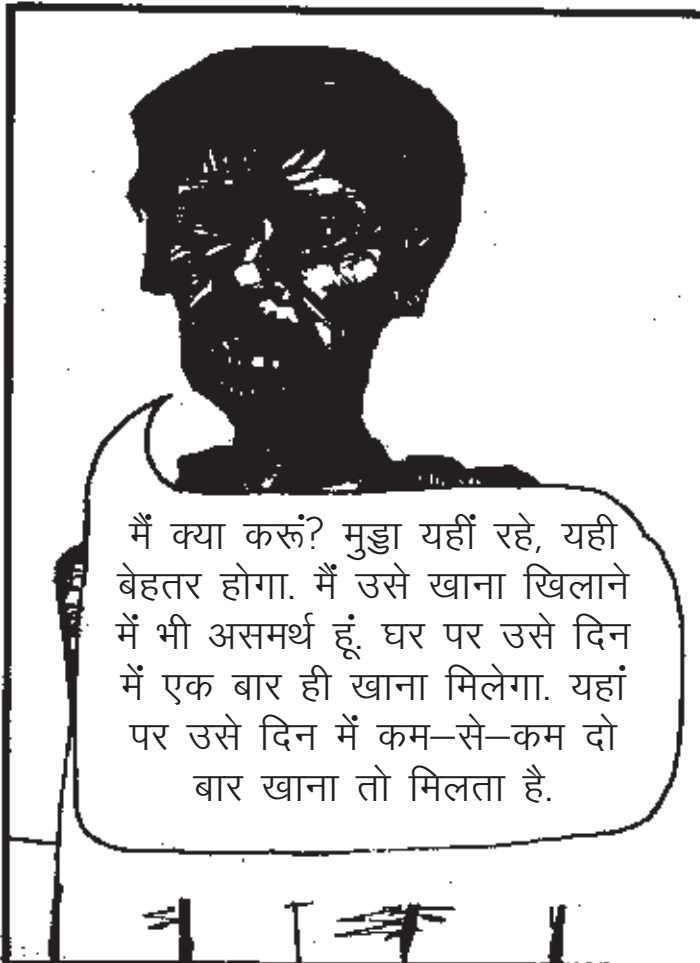 मैं क्या करूं? मुड्डा यहीं रहे, यही
बेहतर होगा. मैं उसे खाना खिलाने
में भी असमर्थ हूं. घर पर उसे दिन
में एक बार ही खाना मिलेगा. यहां
पर उसे दिन में कम–से–कम दो
बार खाना तो मिलता है.